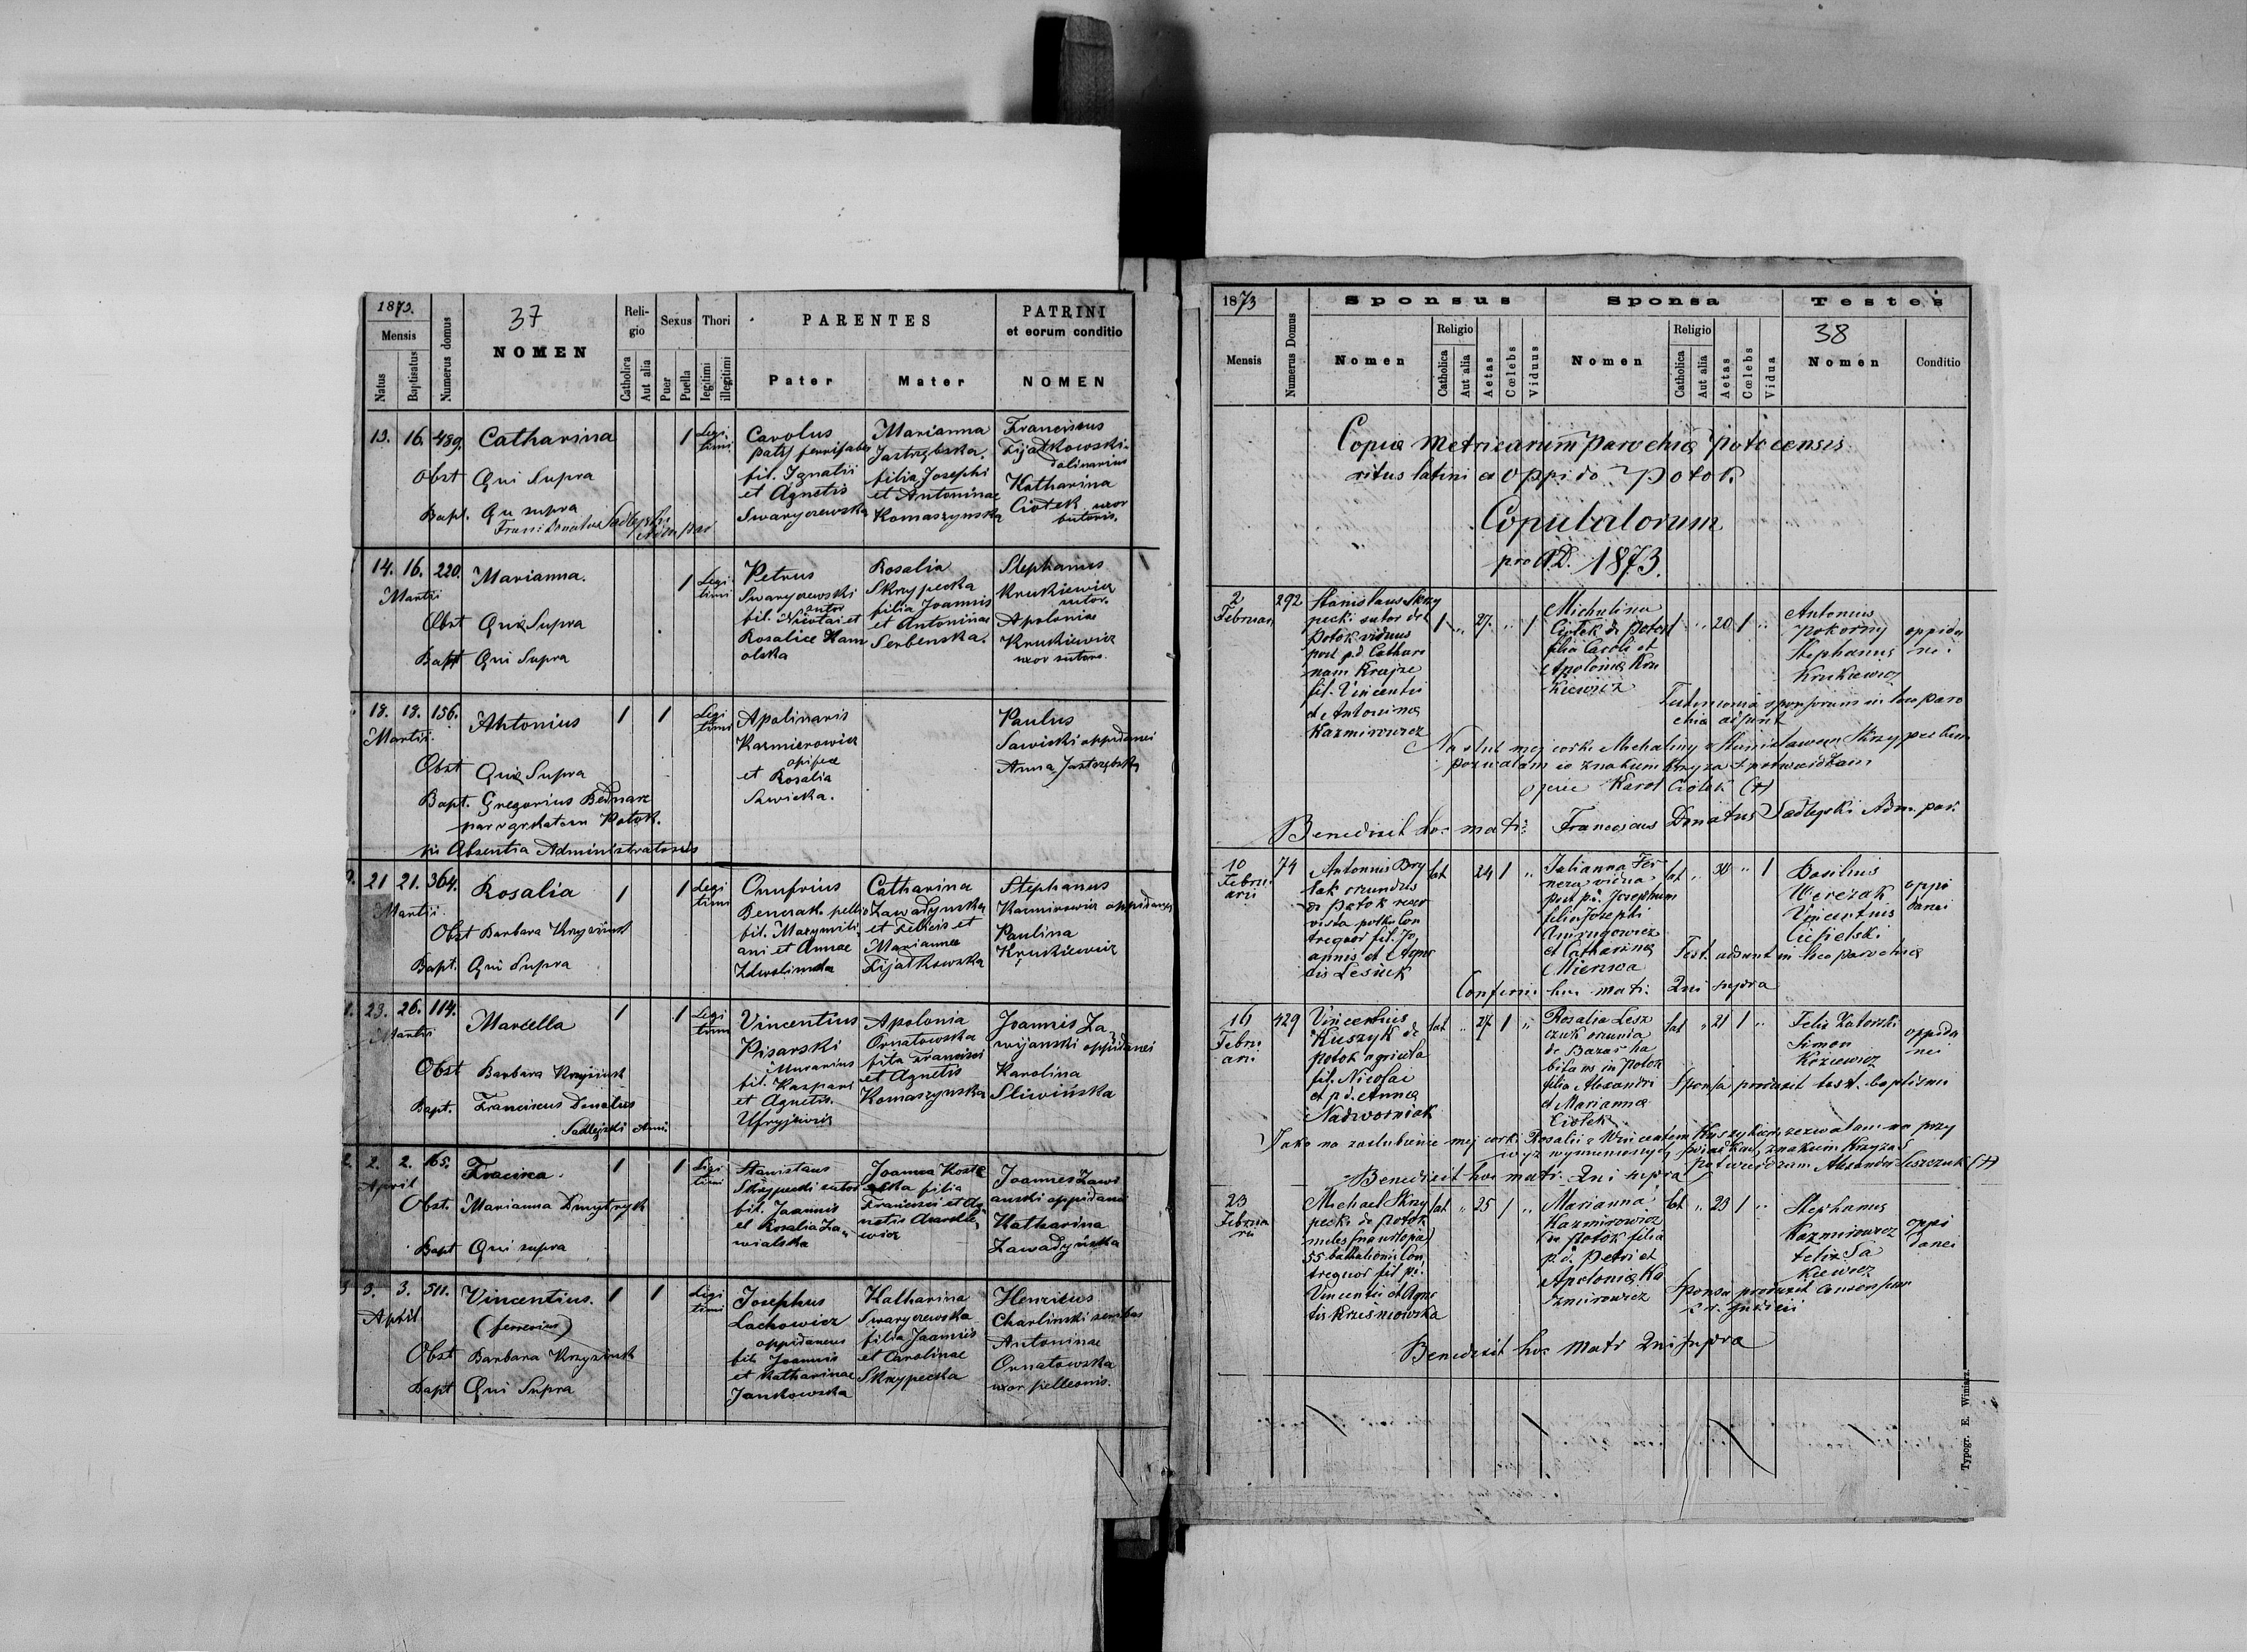 1873.
Mensis
Natus
Baptisatus
Numerus domus
37
NOMEN
Reli-
gio
Catholica
Aut alia
Sexus
Puer
Puella
Thori
legitimi
illegitimi
PARENTES
Pater
Mater
PATRINI
et eorum conditio
NOMEN
13. 16. 489. Catharina 1 Legi
timi
Obst Qui Supra
Bapt. Qu supra
Carolus
fil. Ignatii
et Agnetis
Swaryczewska
Marianna
Jastrzębska.
filia Josephi
et Antoninae
Komaszynska
Franciscus
Fijałkowski
dolinarius
Katharina
Ciołek uxor
sutoris.
14. 16. 220. Marianna. 1 Legi
timi
Martii
Obst Quæ Supra
Bapt Qui Supra
Petrus
Swaryczewski
sutor
fil. Nicolai et
Rosaliae Ham
olska
Rosalia
Skrypecka
filia Joannis
et Antoninae
Serbenska.
Stephanus
Krukiewicz
sutor.
Apolonia
Krukiewicz
uxor sutoris.
18. 19. 156. Antonius 1 1 Legi
timi
Martii.
Obst Quæ Supra
Bapt. Gregorius Bednarz
par v. gr. kat. in Potok.
in Absentia Administratoris
Apolinaris
Kazmirowicz
opifex
et Rosalia
Sawicka.
Paulus
Sawicki oppidanei
Anna Jastrzębska
21 21. 364. Rosalia 1 1 Legi
timi
Martii
Obst Barbara Krzyżiuk
Bapt. Qui Supra
Onufrius
Benerak pellio
fil. Maxymili
ani et Annae
Zdwolinska
Catharina
Zawadynska
et Felicis et
Mariannae
Fijałkowska
Stephanus
Kazmirowicz oppidanei
Paulina
Krukiewicz
23. 26. 114. Marcella 1 1 Legi
timi
Martii
Obst Barbara Krzyżiuk
Bapt. Franciscus Donatus
Sadlejski Admi.
Vincentius
Pisarski
Murarius
fil. Kaspari
et Agnetis.
Ufryjewicz
Apolonia
Ornatowska
filia Francisci
et Agnetis
Komaszynska
Joannis Za
wijanski oppidanei
Karolina
Sliwińska
2. 2. 165. Fracisca. 1 1 Legi
timi
April
Obst. Marianna Dmytryk
Bapt Qui supra
Stanislaus
Skrypecki sutor
fil. Joannis
et Rosalia Za
wialska
Joanna Koste
cka filia
Francisci et Ag
netis
wicz
Joannes Zawi
anski oppidanei
Katharina
Zawadyńska
3. 3. 511. Vincentius. 1 1 Legi
timi
April
(ferrerius)
Obst Barbara Krzyżiuk
Bapt Qui Supra
Josephus
Lachowicz
oppidaneus
fil. Joannis
et Katharinae
Jankowska
Katharina
Swaryczewska
filia Joannis
et Carolinae
Skrzypecka
Henricus
Charlinski scribas
Antoninae
Ornatowska
uxor pelleonis.
1873
Mensis
Numerus Domus
Sponsus
Nomen
Religio
Catholica
Aut alia
Aetas
Cœlebs
Viduus
Sponsa
Nomen
Religio
Catholica
Aut alia
Aetas
Cœlebs
Vidua
Testes
38
Nomen
Conditio
Copia Metricarum parochiæ Potocensis
ritus latini a oppido Potok
Copulatorum
pro A.D. 1873.
2
Februar.
292
Stanislaus Skrzy
pecki sutor de
Potok viduus
post p.d. Catharı
nam Krajze
fil. Vincentii
et Antoninæ
Kazmirowicz
1 " 27. " 1
Michalina
Ciołek de Potok
filia Caroli et
Apoloniæ Kru
kiewicz
1 " 20 1 "
Antonius
Pokorny
Stephanus
Krukiewicz
oppida
nei
Testimonia sponsorum in loco paro
chia adsunt
Na slub mej corki Michaliny z Stanisławem Skrzypeckim
pozwalam co znakiem krzyża potwierdzam
ojciec Karol Ciołek (+)
Benedixit hoc matri: Franciscus Donatus Sadlejski Adm. par.
10
Febru
arii
74
Antonius Bry
lak oriundus
de Potok reser
vista
fil. Jo
annis et Agne
tis Lesiuk
cat 24 1
Julianna Fer
vidua
post p.d. Josephum
filia Josephi
et Catharinæ
Mierzwa
cat " 38 " 1
Basilius
Werczak
Vincentius
Ciesielski
oppi
danei
Test. adsunt in loco parochiæ
hoc matr: Qui supra
16
Febru
arii
429
Vincentius
Kuszyk de
Potok agricola
fil. Nicolai
et p.d. Annæ
Nadworniak
cat " 27 1 "
Rosalia Lesz
czuk oriunda
de Bazar ha
bitans in Potok
filia Alexandri
et Mariannæ
Ciołek
cat " 21 1 "
Felix Zatorski
Simon
Koziewicz
oppida
nei
Sponsa produxit test. baptismi
Jako na zaslubienie mej corki Rosalii z Wincentym Kuszykiem zezwalam na przy
wyz wymienionych swiadkach znakiem Krzyza
potwierdzam Alexander Leszczuk (+)
Benedixit hoc matr. Qui supra
23
Februa
rii
Michael Skrzy
pecki de Potok
miles (na urlopie)
55 battalionis
fil. p.d.
Vincentii et Agne
tis Krzesniowska
cat " 25 1 "
Marianna
Kazmirowicz
de Potok filia
p.d. Petri et
Apoloniæ Ka
zmirowicz
cat " 23 1 "
Stephanus
Kazmirowicz
Felix Sa
kiewicz
oppi
danei
Sponsa produxit consens par
Benedixit hoc Matr Qui supra
Typogr. E. Winiarz.